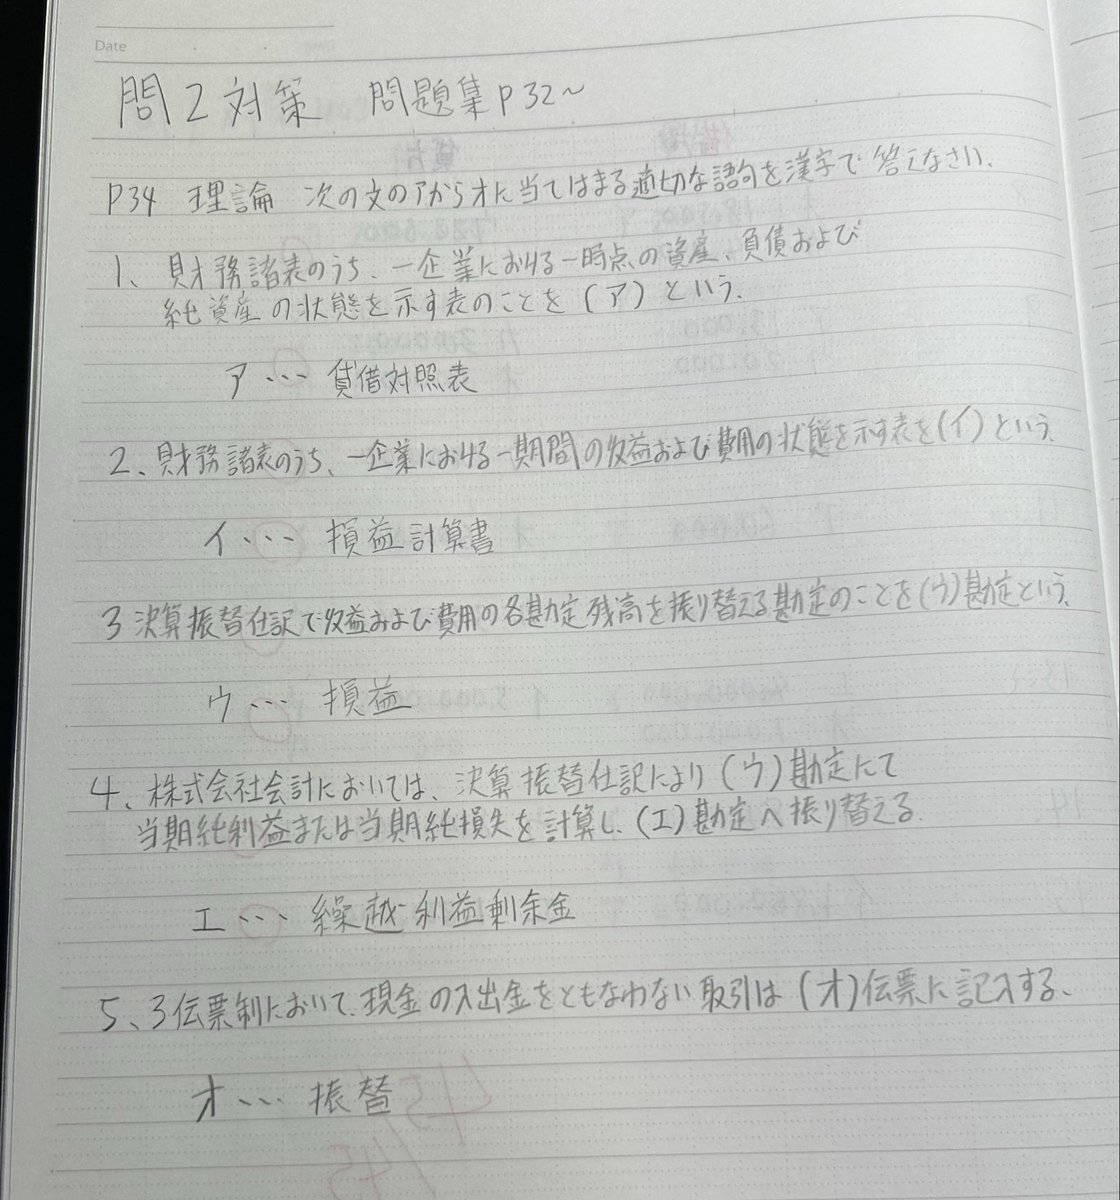 Date
問2対策 問題集P32~
P34 理論 次の文のアからオに当てはまる適切な語句を漢字で答えなさい.
1、財務諸表のうち、一企業における一時点の資産、負債および
純資産の状態を示す表のことを(ア)という.
ア… 貸借対照表
2、財務諸表のうち、一企業における一期間の収益および費用の状態を示す表を(イ)という.
イ… 損益計算書
3 決算振替仕訳で収益および費用の各勘定残高を振り替える勘定のことを(ウ)勘定という.
ウ… 損益
4、株式会社会計においては、決算振替仕訳により(ウ)勘定にて
当期純利益または当期純損失を計算し、(エ)勘定へ振り替える.
エ… 繰越利益剰余金
5、3伝票制において、現金の入出金をともなわない取引は(オ)伝票に記入する、
オ… 振替